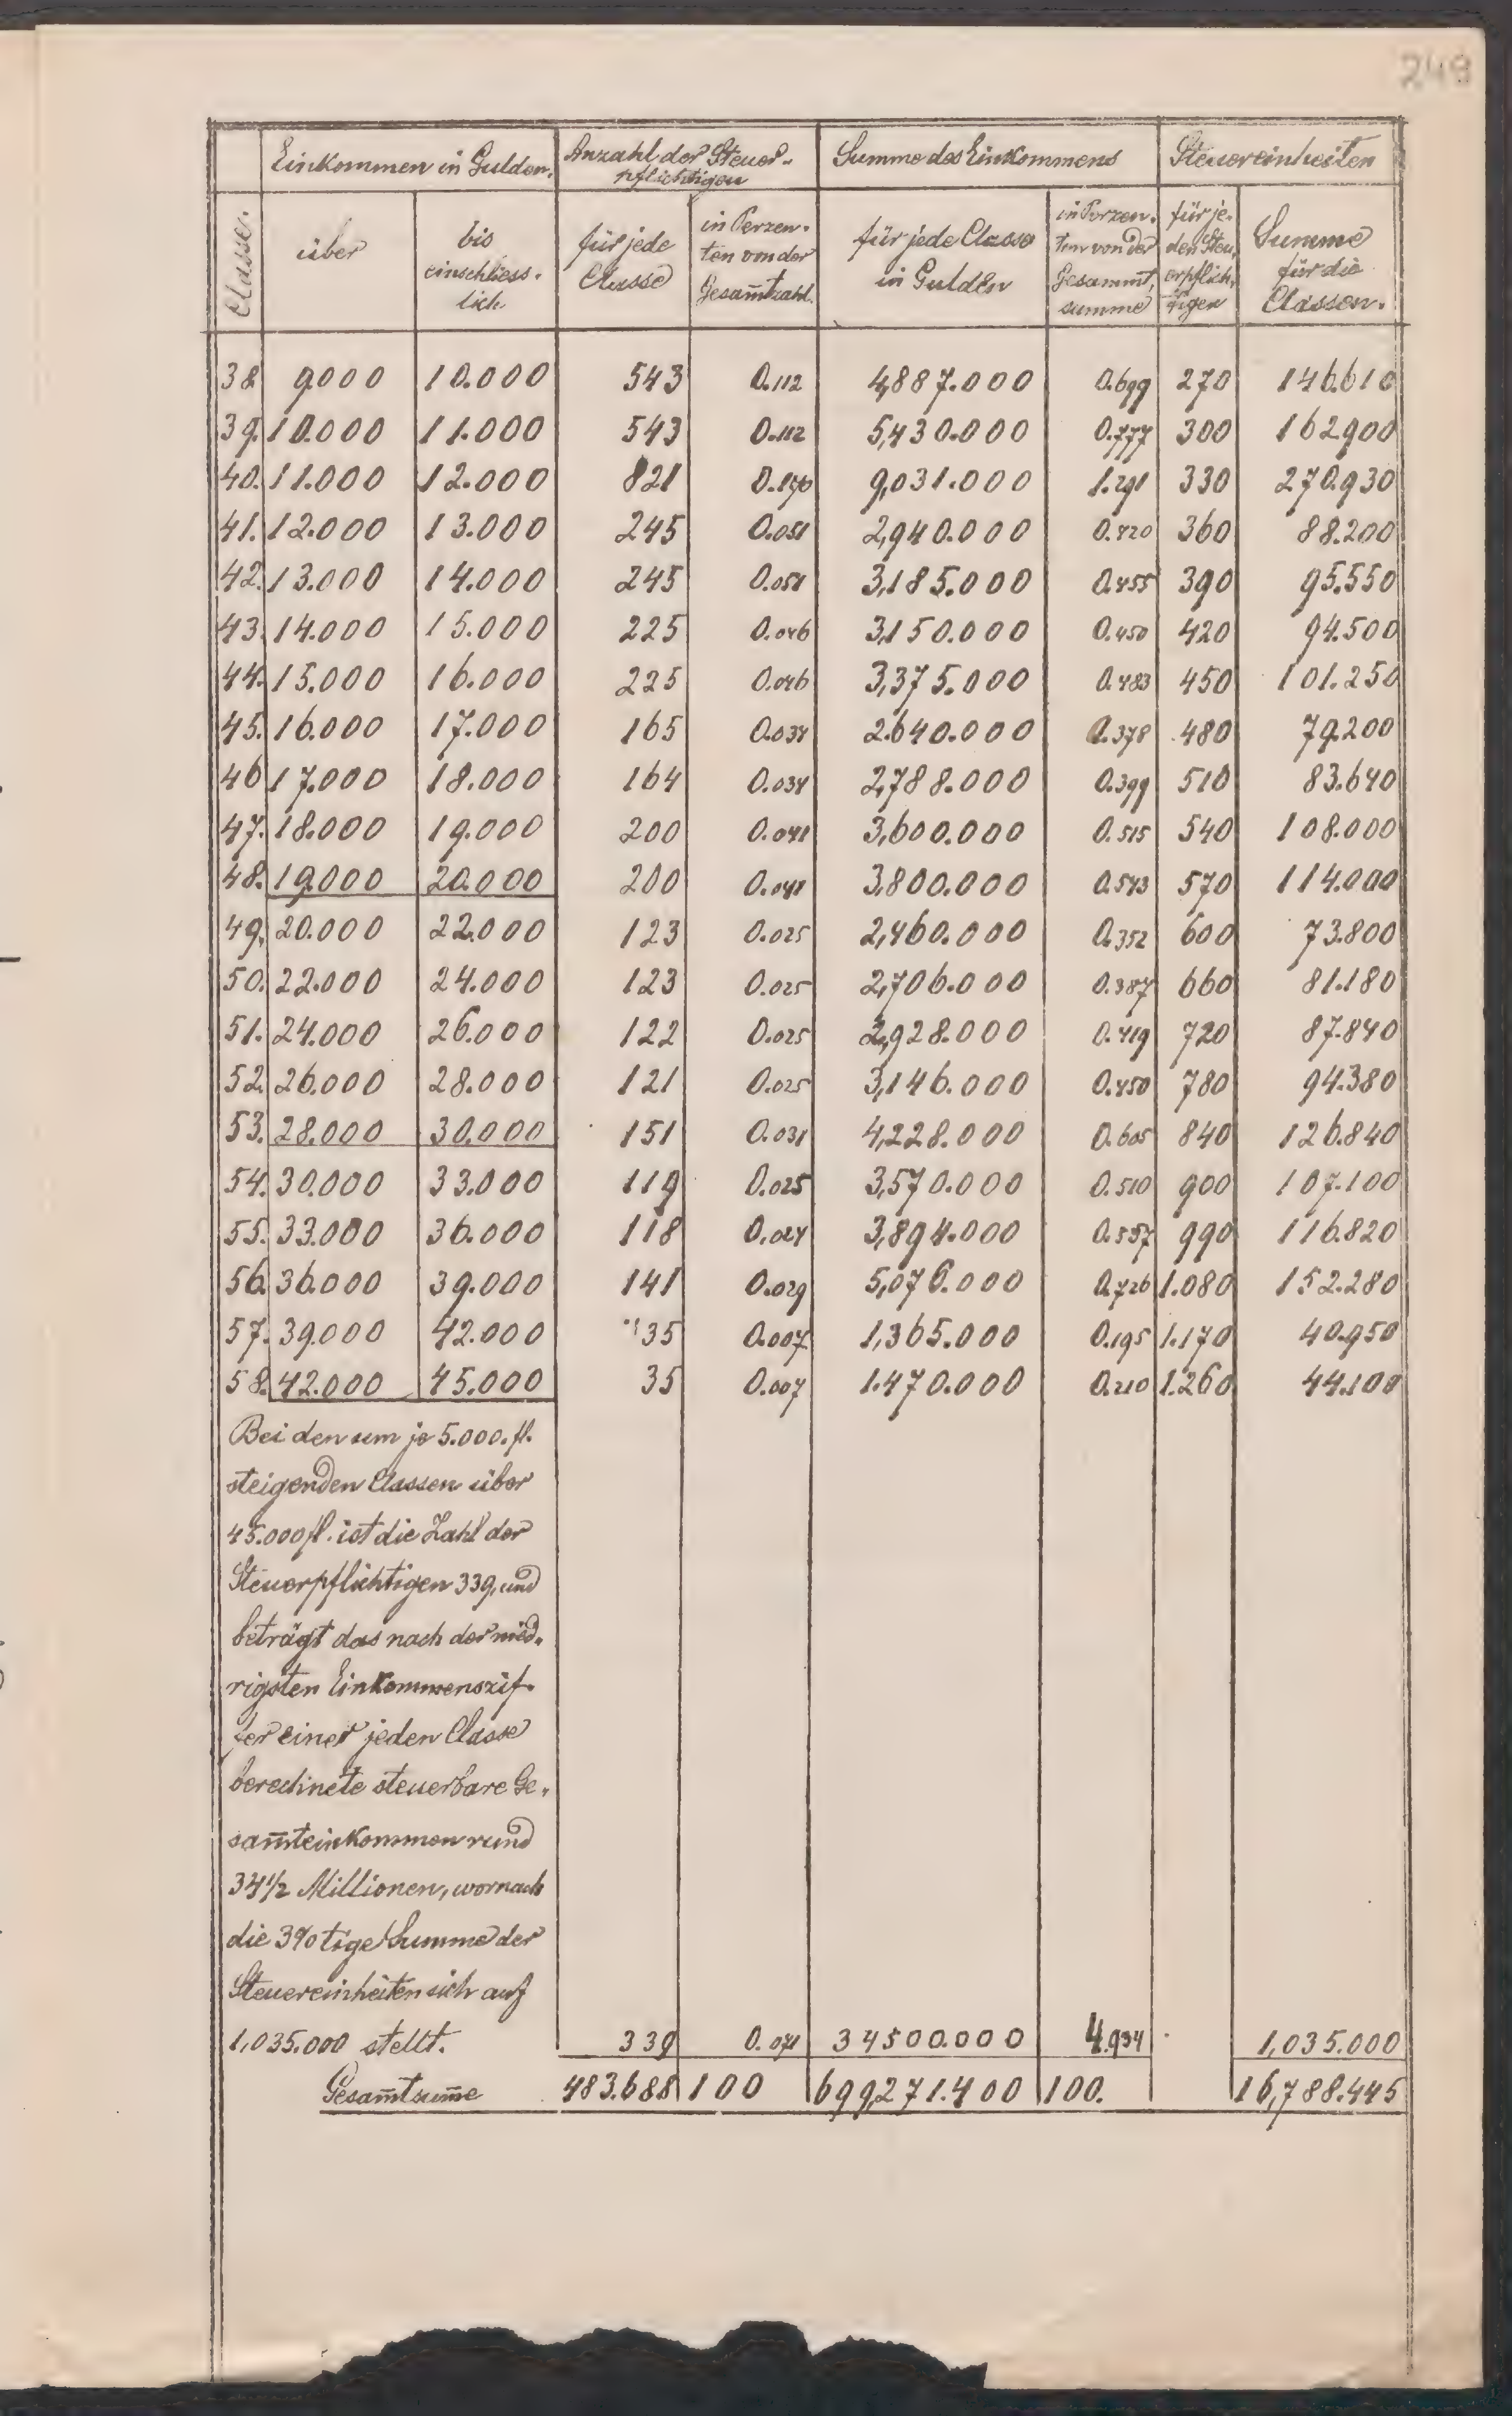 249
Einkommen in Gulden. Anzahl der Steuer- Summe des Einkommens Steuereinheiten
pflichtigen
Classe. über bis einschliess- lich. für jede Classe in Perzen- ten von der Gesam̅tzahl. für jede Classe in Gulden in Perzen- ten von der Gesammt- summe für je- den Steu- erpflich- tigen Summe für die Classen.
38 9000 10.000 543 0.112 4,887.000 0.699 270 146.610
39. 10.000 11.000 543 0.112 5,430.000 0.777 300 162900
40. 11.000 12.000 821 0.170 9,031.000 1.291 330 270.930
41. 12.000 13.000 245 0.051 2,940.000 0.420 360 88.200
42. 13.000 14.000 245 0.051 3,185.000 0.455 390 95.550
43. 14.000 15.000 225 0.046 3,150.000 0.450 420 94.500
44. 15.000 16.000 225 0.046 3,375.000 0.483 450 101.250
45. 16.000 17.000 165 0.034 2.640.000 0.378 480 79.200
46 17.000 18.000 164 0.034 2,788.000 0.399 510 83.640
47. 18.000 19.000 200 0.041 3,600.000 0.515 540 108.000
48. 19.000 20.000 200 0.041 3,800.000 0.543 570 114.000
49. 20.000 22.000 123 0.025 2,460.000 0.352 600 73.800
50. 22.000 24.000 123 0.025 2,706.000 0.387 660 81.180
51. 24.000 26.000 122 0.025 2,928.000 0.419 720 87.840
52. 26.000 28.000 121 0.025 3,146.000 0.450 780 94.380
53. 28.000 30.000 151 0.031 4,228.000 0.605 840 126.840
54. 30.000 33.000 119 0.025 3,570.000 0.510 900 107.100
55. 33.000 36.000 118 0.024 3,894.000 0.557 990 116.820
56. 36.000 39.000 141 0.029 5,076.000 0.726 1.080 152.280
57. 39.000 42.000 35 0.007 1,365.000 0.195 1.170 40.950
58. 42.000 45.000 35 0.007 1.470.000 0.210 1.260 44.100
Bei den um je 5.000. fl.
steigenden Classen über
45.000 fl. ist die Zahl der
Steuerpflichtigen 339, und
beträgt das nach der nied-
rigsten Einkommenszif-
fer einer jeden Classe
berechnete steuerbare Ge-
sam̅teinkommen rund
34 1/2 Millionen, wornach
die 3%tige Summe der
Steuereinheiten sich auf
1,035.000 stellt. 339 0.071 34500.000 4.934 1,035.000
Gesam̅tsum̅e 483.688 100 699,271.400 100. 16,788.445